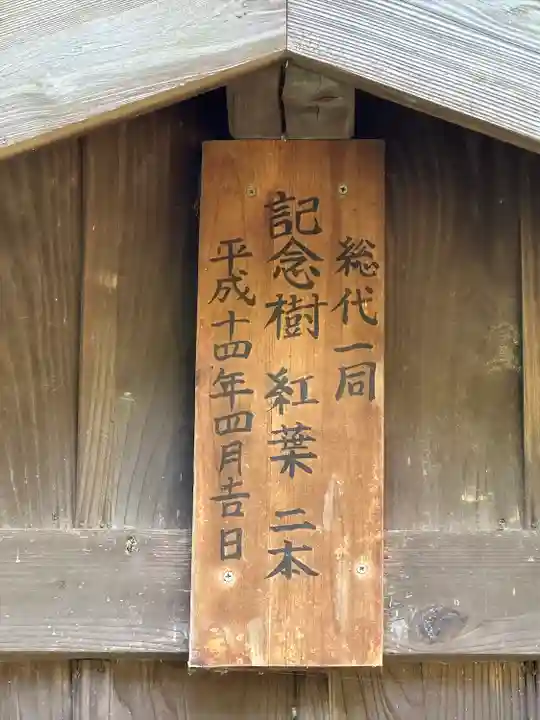 総代一同
記念樹 紅葉 二本
平成十四年四月吉日